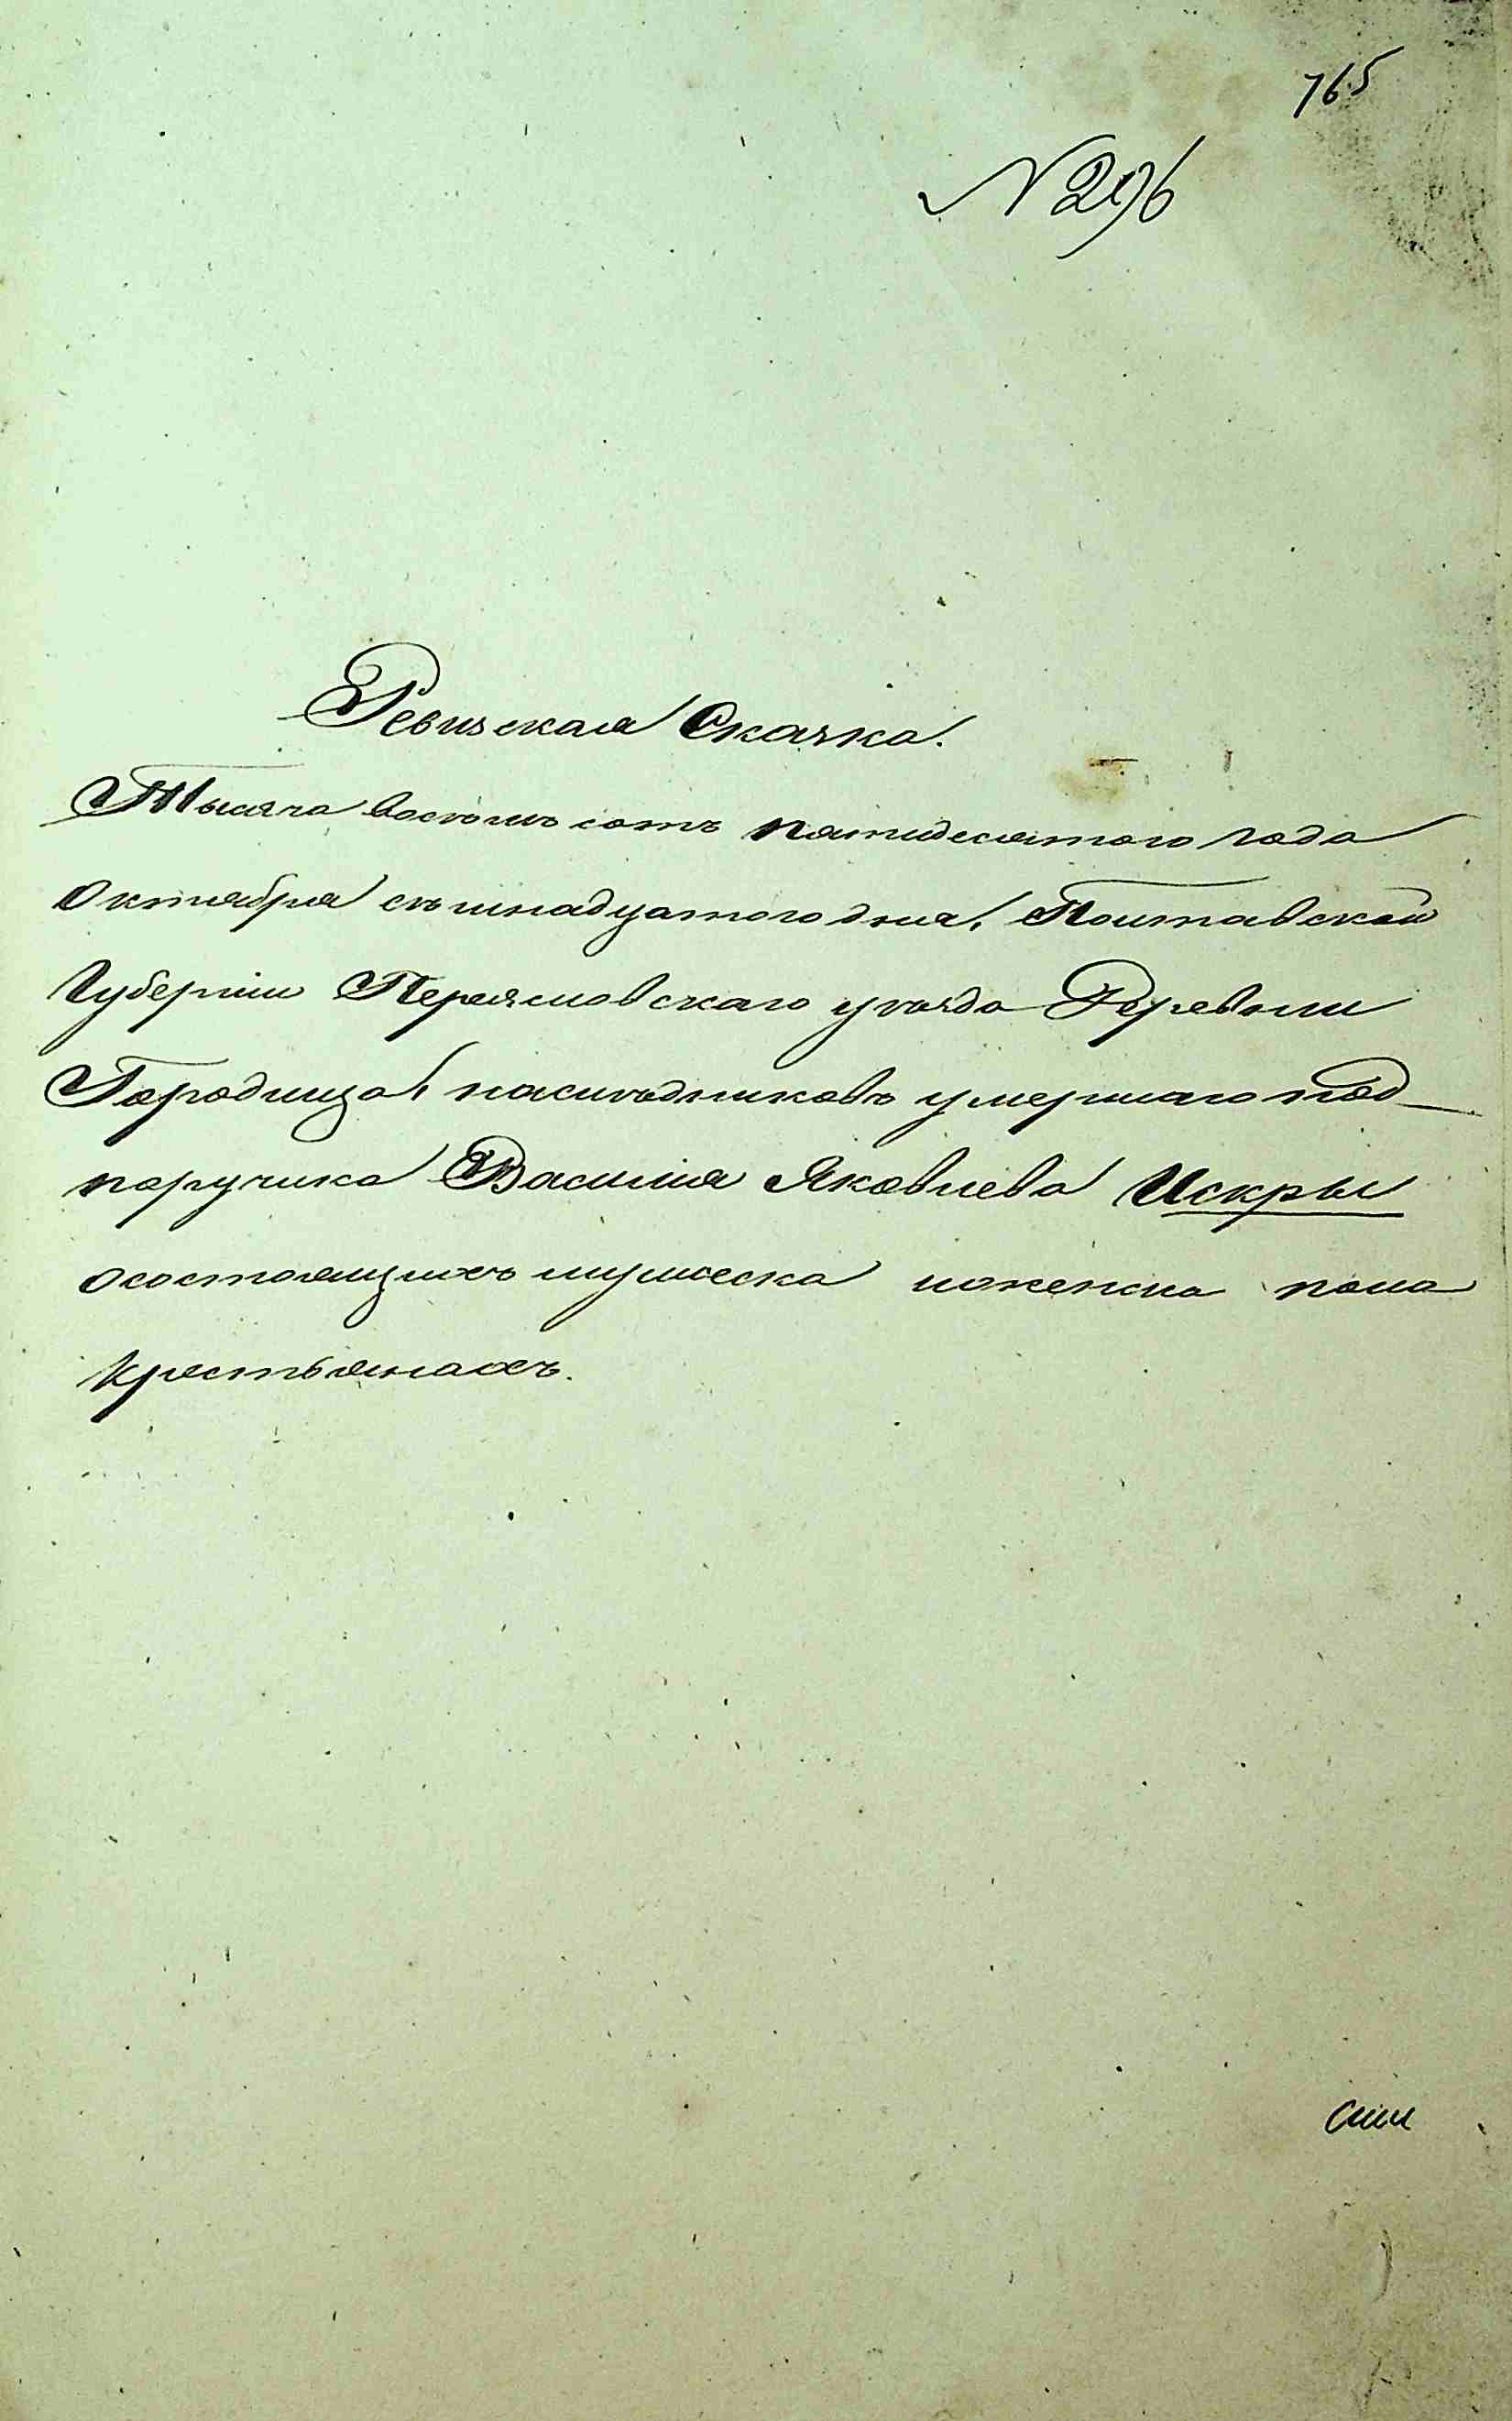 765
N 296
Ревизская Сказка.
Тысяча восѣмь сотъ пятидесятого года
Октября сѣмнадцатого дня, Полтавской
Губерніи Переяславскаго уѣзда Деревни
Городища, наслѣдниковъ умершаго под-
поручика Василия Яковлева Искры
осостоящихъ мужеска иженска пола
крестьянахъ.